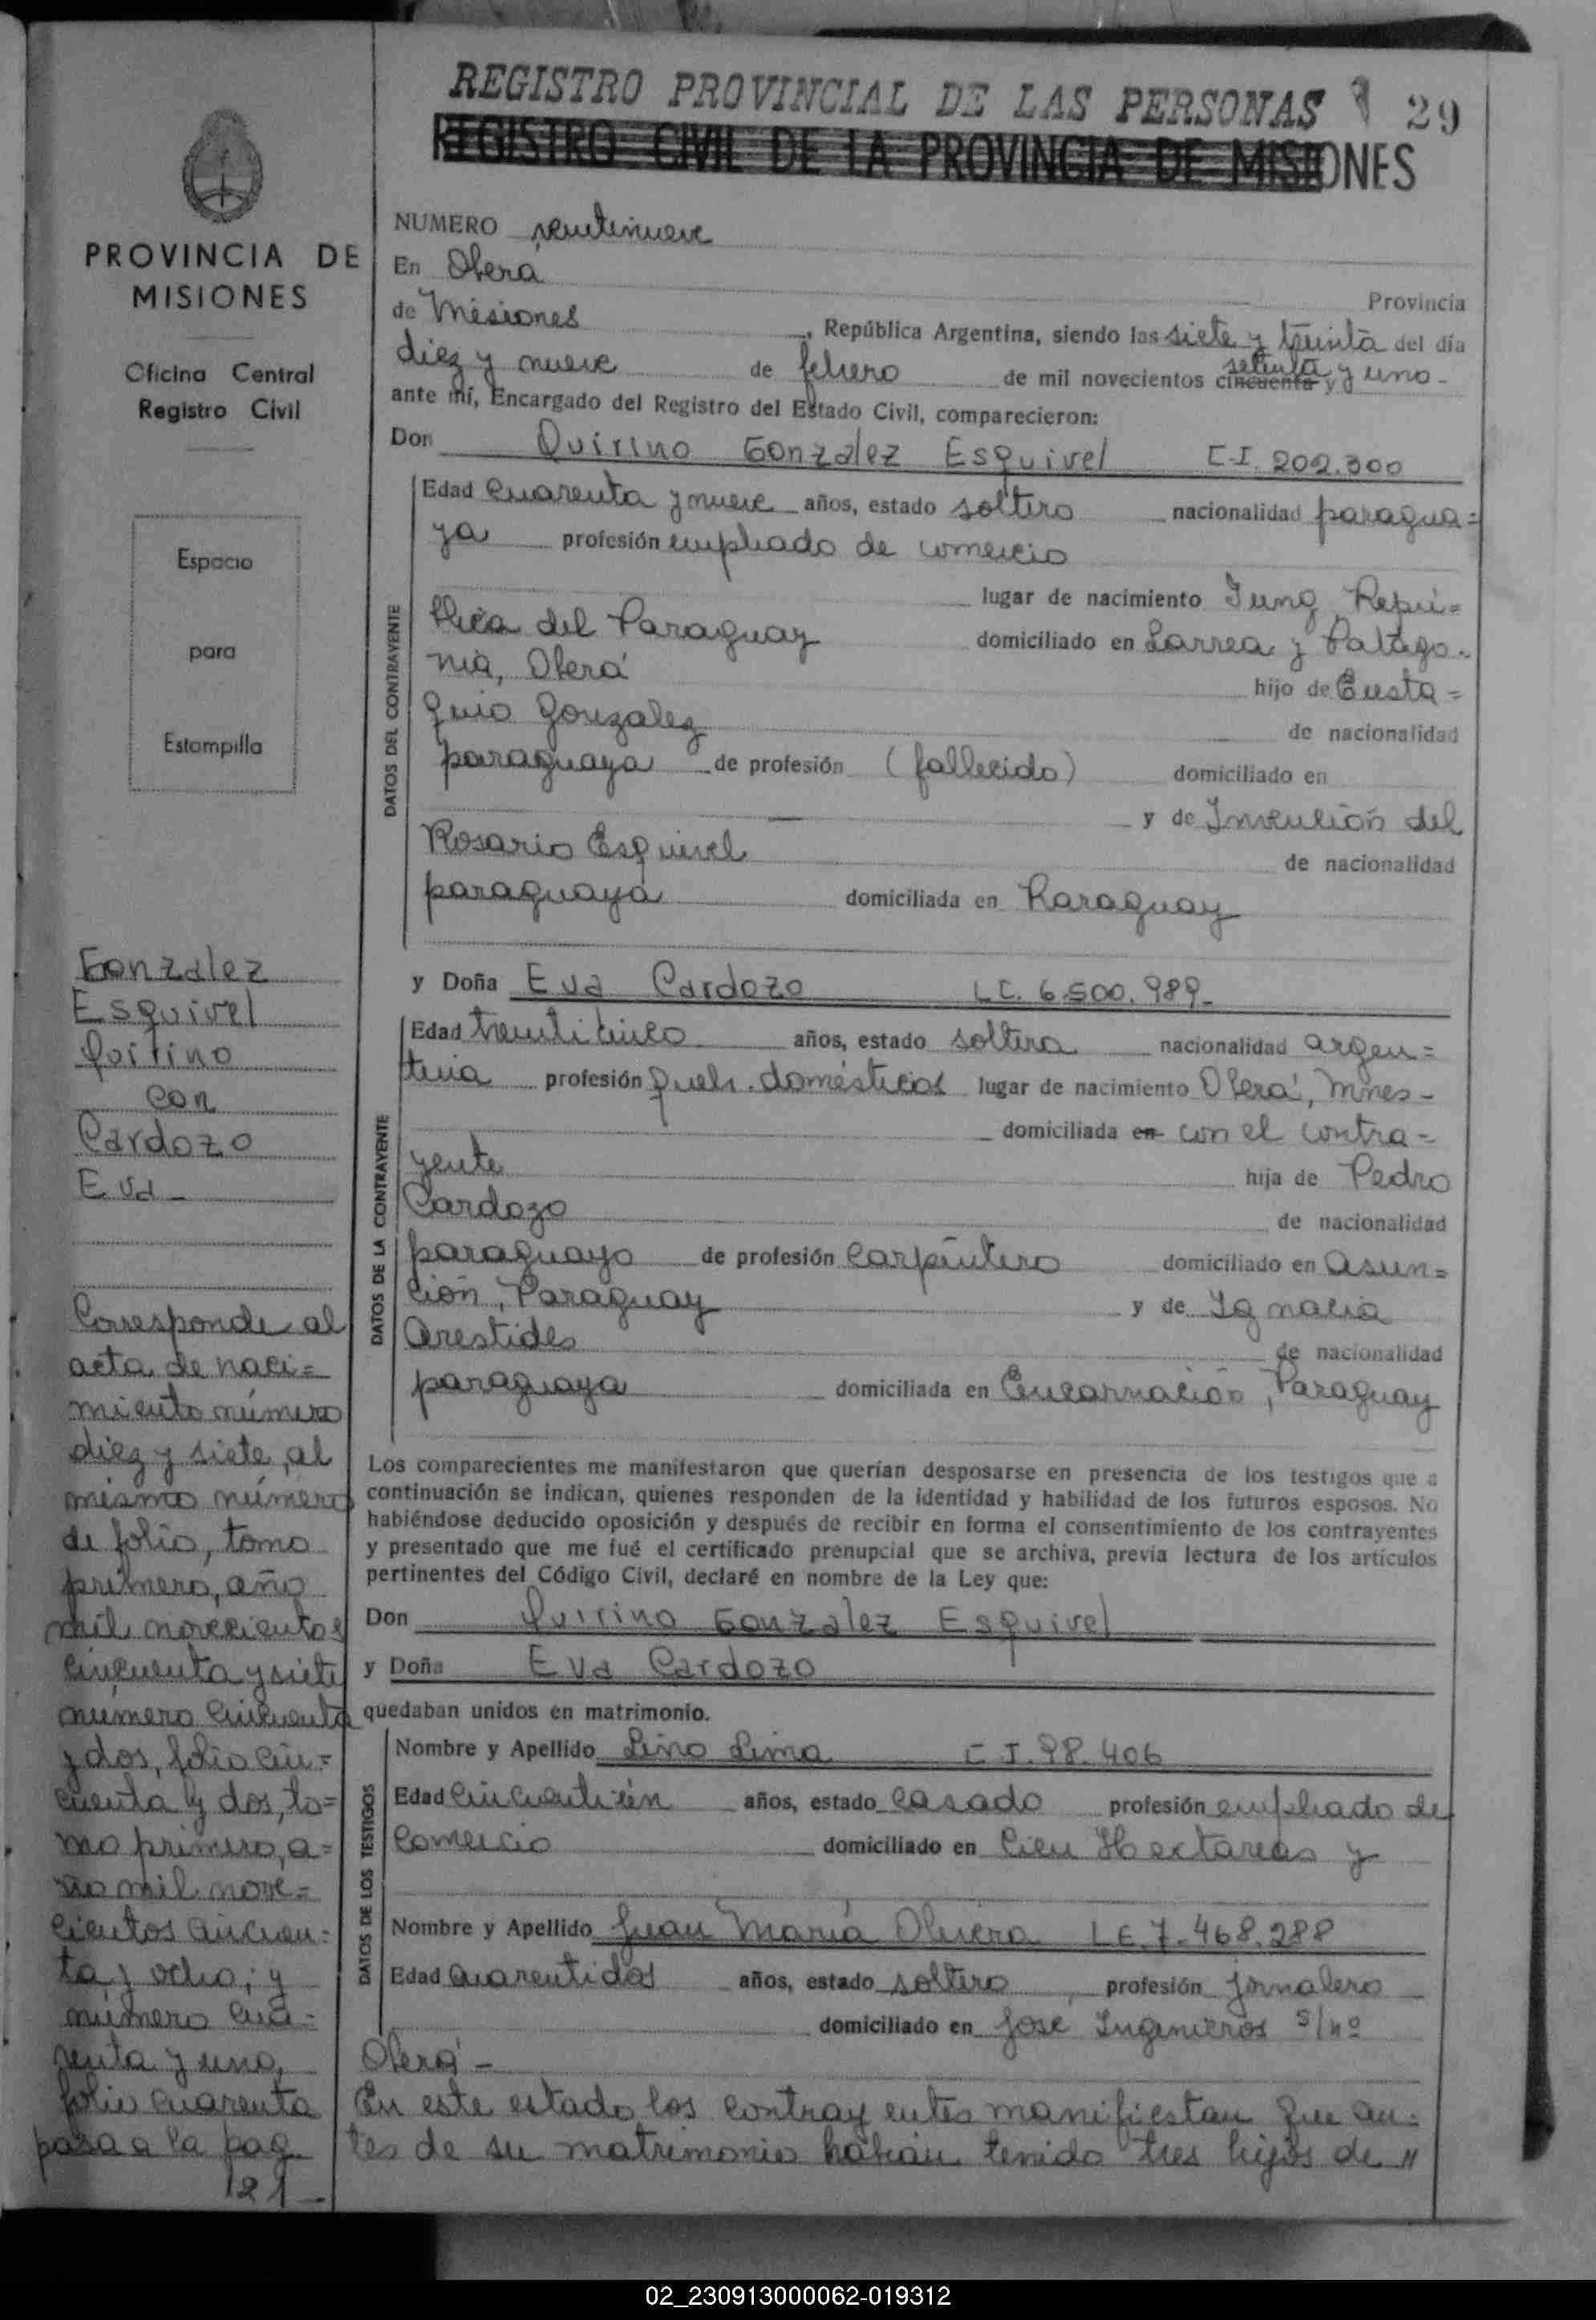 REGISTRO PROVINCIAL DE LAS PERSONAS 29
REGISTRO CIVIL DE LA PROVINCIA DE MISIONES
PROVINCIA DE
MISIONES
Oficina Central
Registro Civil
Espacio
para
Estampilla
Gonzalez
Esquivel
Quirino
con
Cardozo
Eva -
Corresponde al
acta de naci=
miento número
diez y siete, al
mismo número
de folio, tomo
primero, año
mil novecientos
cincuenta y siete
número cincuenta
y dos, folio cin=
cuenta y dos, to=
mo primero, a=
ño mil nove=
cientos cincuen=
ta y ocho; y
número cua=
renta y uno,
folio cuarenta
pasa a la pag.
121 -
NUMERO veintinueve
En Oberá Provincia
de Misiones, República Argentina, siendo las siete y treinta del día
diez y nueve de febrero de mil novecientos cincuenta y setenta y uno -
ante mí, Encargado del Registro del Estado Civil, comparecieron:
Don Quirino Gonzalez Esquivel C.I. 202.300
DATOS DEL CONTRAYENTE
Edad cuarenta y nueve años, estado soltero nacionalidad paragua=
ya profesión empleado de comercio
lugar de nacimiento Repú=
blica del Paraguay domiciliado en Larrea y Patago-
nia, Oberá hijo de Eusta=
quio Gonzalez de nacionalidad
paraguaya de profesión (fallecido) domiciliado en
— y de Invención del
Rosario Esquivel de nacionalidad
paraguaya domiciliada en Paraguay
y Doña Eva Cardozo L.C. 6.500.989-
DATOS DE LA CONTRAYENTE
Edad treinticinco años, estado soltera nacionalidad argen=
tina profesión queh. domésticos lugar de nacimiento Oberá, Mnes-
domiciliada en con el contra=
yente hija de Pedro
Cardozo de nacionalidad
paraguayo de profesión carpintero domiciliado en Asun=
ción, Paraguay y de Ignacia
Arestides de nacionalidad
paraguaya domiciliada en Encarnación, Paraguay
Los comparecientes me manifestaron que querían desposarse en presencia de los testigos que a
continuación se indican, quienes responden de la identidad y habilidad de los futuros esposos. No
habiéndose deducido oposición y después de recibir en forma el consentimiento de los contrayentes
y presentado que me fué el certificado prenupcial que se archiva, previa lectura de los artículos
pertinentes del Código Civil, declaré en nombre de la Ley que:
Don Quirino Gonzalez Esquivel
y Doña Eva Cardozo
quedaban unidos en matrimonio.
DATOS DE LOS TESTIGOS
Nombre y Apellido Lino Lima C.I. 98.406
Edad cincuentiún años, estado casado profesión empleado de
comercio domiciliado en Cien Hectareas y
Nombre y Apellido Juan María Olivera L.E. 7.468.288
Edad cuarentidos años, estado soltero, profesión jornalero
domiciliado en José Ingenieros s/nº
Oberá -
En este estado los contrayentes manifiestan que an=
tes de su matrimonio habían tenido tres hijos de "
02_230913000062-019312